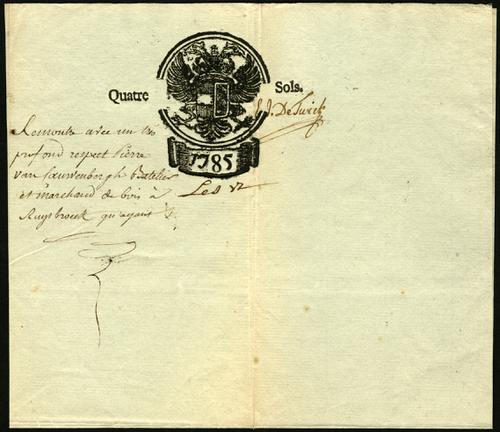 Quatre Sols.
J. J. De Turck
1785
Remontre avec un très
profond respect Pierre
van Cauwenbergh Batelier
et marchand de bois à
Ruysbroeck qu'ayant
Les